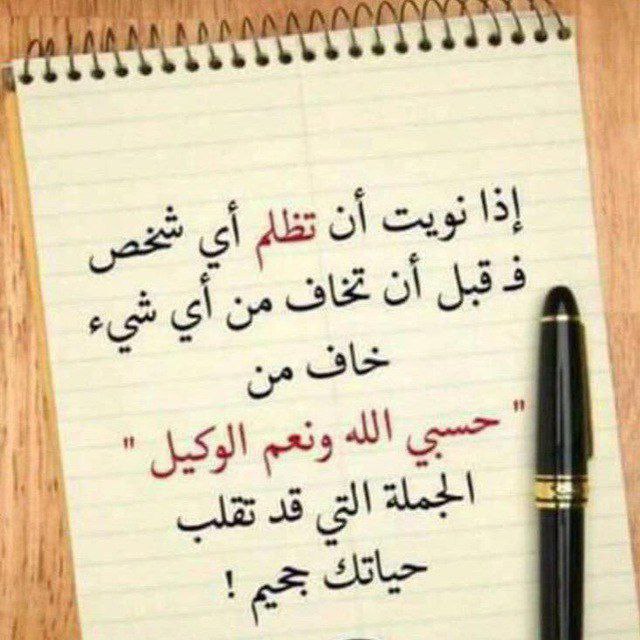 إذا نويت أن تظلم أي شخص
فـ قبل أن تخاف من أي شيء
خاف من
" حسبي الله ونعم الوكيل "
الجملة التي قد تقلب
حياتك جحيم !